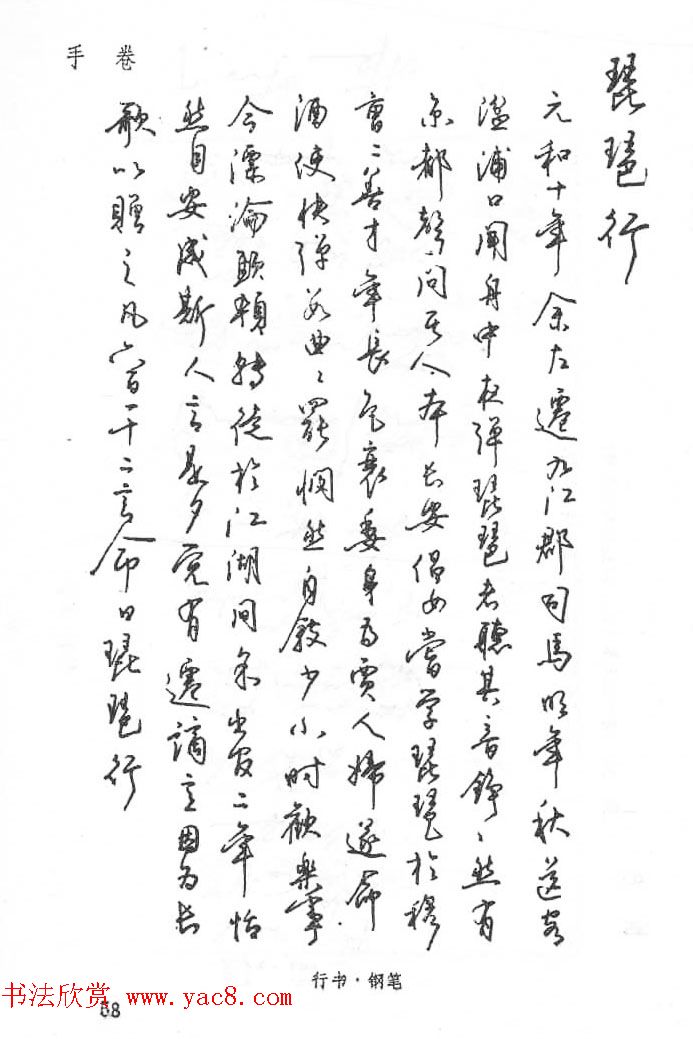 手卷
琵琶行
元和十年余左遷九江郡司馬明年秋送客
湓浦口聞舟中夜弹琵琶者聽其音錚々然有
京都聲问其人本长安倡女嘗学琵琶於穆
曹二善才年長色衰委身为贾人婦遂命
酒使快弹数曲々罷憫然自叙少小时歡樂事
今漂淪憔顇转徙於江湖间余出官二年恬
然自安感斯人言是夕觉有遷謫意因为长
歌以贈之凡六百一十二言命曰琵琶行
行书·钢笔
书法欣赏 www.yac8.com
68